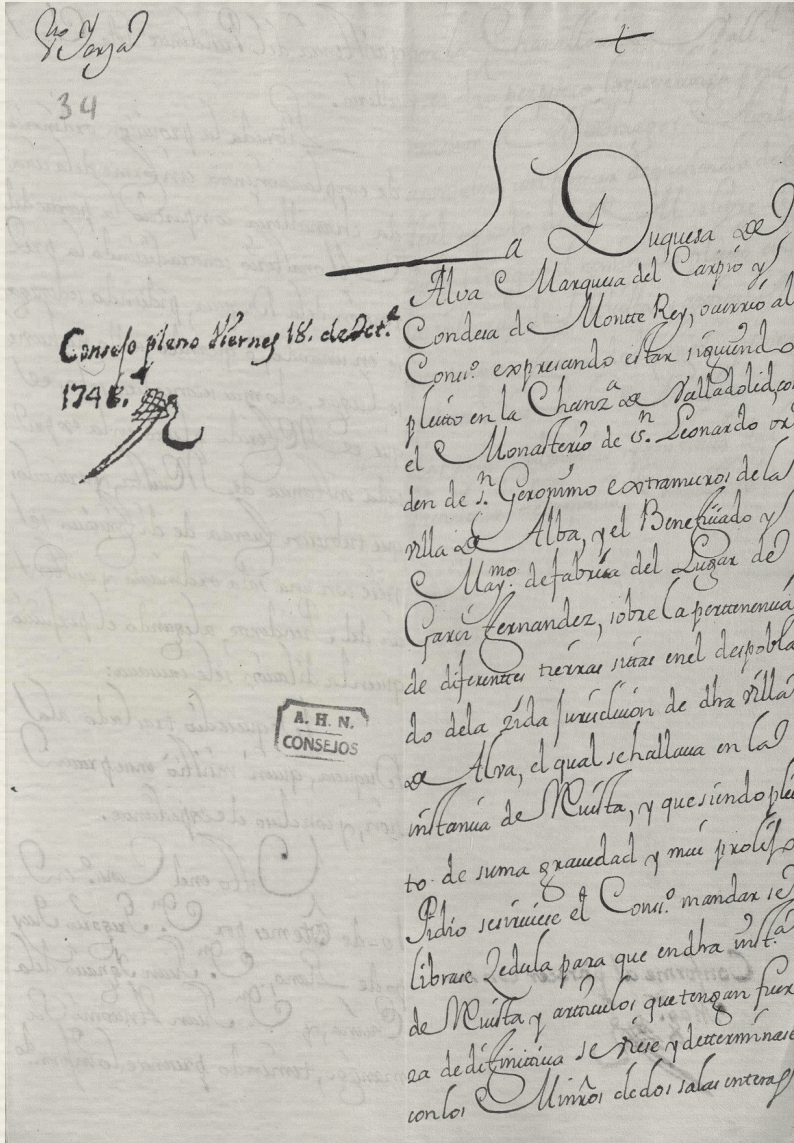 34
La Duquesa de
Alva Marquesa del Carpio y
Condesa de Montte Rey, ocurrió al
Cons.º expresando estar siguiendo
pleito en la Chanz.ª de Valladolid, con
el Monasterio de S.n Leonardo or
den de S.n Geronimo extramuros de la
villa de Alba, y el Beneficiado y
May.mo de fabrica del Lugar de
Garci fernandez, sobre la perttenencia
de diferenttes tierras sitas en el despobla
do de la zida Jurisdicion de dha villa
de Alva, el qual se hallava en la
instancia de Revista, y que siendo plei
to de suma gravedad y mui prolijo
Pidio se sirviese el Cons.º mandar se
librase Zedula para que en dha inst.ª
de Revista y articulos que tengan fuer
za de difinitiva se viese y determinase
con los Minrõs de dos salas enteras
Consejo pleno Viernes 18. de Oct.e
1748.
A. H. N.
CONSEJOS